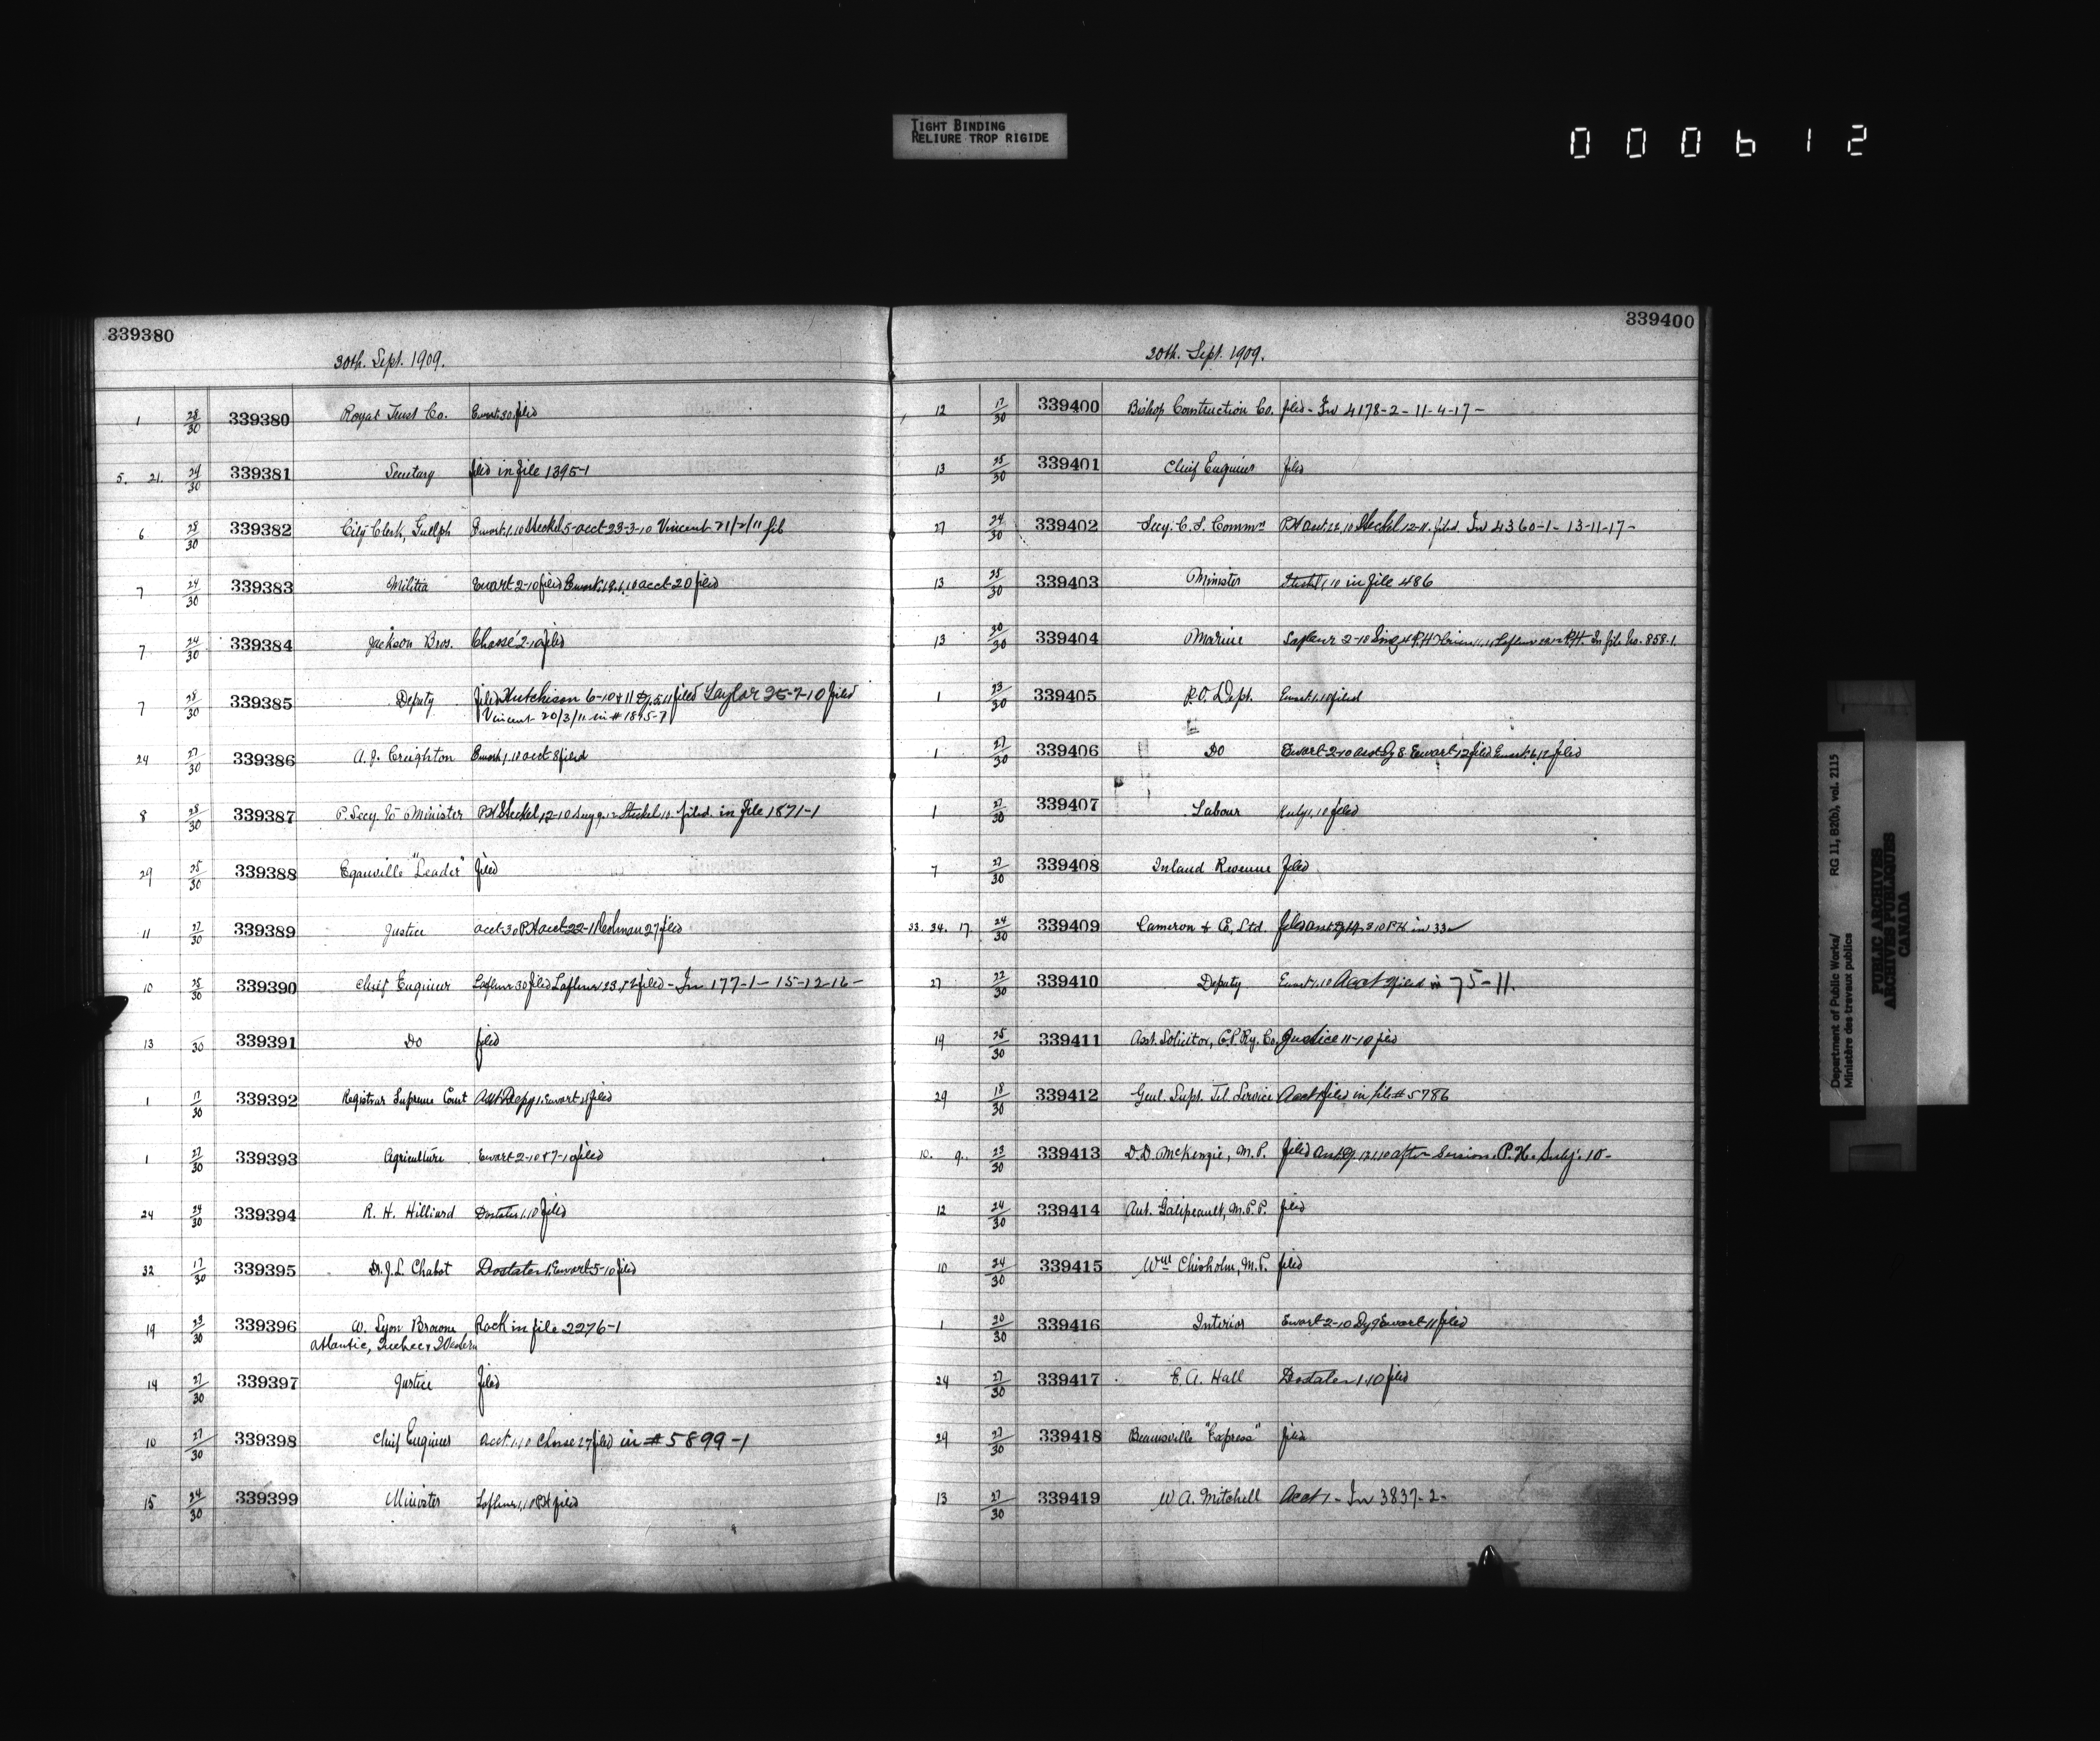 TIGHT BINDING
RELIURE TROP RIGIDE
000612
339380
30th. Sept. 1909.
1 28/30 339380 Royal Trust Co. Ewart 30 filed
5. 21. 29/30 339381 Secretary filed in file 1395-1
6 28/30 339382 City Clerk, Guelph Ewart 1.10 Steckel 5-acct 23-3-10 Vincent 21/2/11 fil
7 24/30 339383 Militia Ewart 2-10 filed Ewart acct 20 filed
7 24/30 339384 Jackson Bros. Chassé 2-10 filed
7 28/30 339385 Deputy filed Hutchison 6-10 & 11 filed Taylor 25-7-10 filed
Vincent 20/3/11 in # 1895-7
24 27/30 339386 A. J. Creighton Ewart 1.10 acct 8 filed
8 28/30 339387 P. Secy. to Minister PH Steckel 12-10 Steckel filed in file 1871-1
29 25/30 339388 Eganville "Leader" filed
11 27/30 339389 Justice acct 30 PH acct 22-11 27 filed
10 25/30 339390 Chief Engineer Lafleur 30 filed Lafleur 23.12 filed - In 177-1 - 15-12-16 -
13 /30 339391 Do filed
1 17/30 339392 Registrar Supreme Court Ewart filed
1 27/30 339393 Agriculture Ewart 2-10 & 7-10 filed
24 24/30 339394 R. H. Hilliard Dostaler 1.10 filed
32 17/30 339395 Dr. J. L. Chabot Dostaler 1. Ewart 5-10 filed
19 23/30 339396 W. Lyon Browne Rock in file 2276-1
Atlantic, Quebec & Western
14 27/30 339397 Justice filed
10 27/30 339398 Chief Engineer Acct. 1.10 Chase 27 filed in # 5899-1
15 24/30 339399 Minister Lafleur 1.10 PH filed
339400
30th. Sept. 1909.
12 17/30 339400 Bishop Construction Co. filed - In 4178-2 - 11-4-17 -
13 25/30 339401 Chief Engineer filed
27 24/30 339402 Secy. C. S. Commn PH Steckel 12-11. filed. In 4360-1- 13-11-17-
13 28/30 339403 Minister 1.10 in file 486
13 20/30 339404 Marine Lafleur 2-10 PH In file No. 858-1.
1 23/30 339405 P.O. Dept. Ewart 1.10 filed
1 27/30 339406 Do Ewart 2-10 acct Dy 8 Ewart 12 filed Ewart 6.12 filed
1 27/30 339407 Labour 1.10 filed
7 27/30 339408 Inland Revenue filed
33. 34. 17. 24/30 339409 Cameron & Co, Ltd. filed PH in 33
27 22/30 339410 Deputy Ewart 1.10 Acct 9 filed in 75-11.
19 25/30 339411 Asst. Solicitor, C.P. Ry. Co. Justice 11-10 filed
29 18/30 339412 Genl. Supt. Tel. Service Acct 1 filed in file # 5786
10. 9. 23/30 339413 D. D. McKenzie, M.P. filed after Session. P.H. July 10 -
12 24/30 339414 Ant. Galipeault, M.P.P. filed
10 24/30 339415 Wm Chisholm, M.P. filed
1 20/30 339416 Interior Ewart 2-10 Dy 9 Ewart 11 filed
24 27/30 339417 E. A. Hall Dostaler 1.10 filed
29 27/30 339418 Beamsville "Express" filed
13 27/30 339419 W A. Mitchell Acct 1 - In 3837-2-
Department of Public Works/ RG 11, B2(b), vol. 2115
Ministère des travaux publics
PUBLIC ARCHIVES
ARCHIVES PUBLIQUES
CANADA